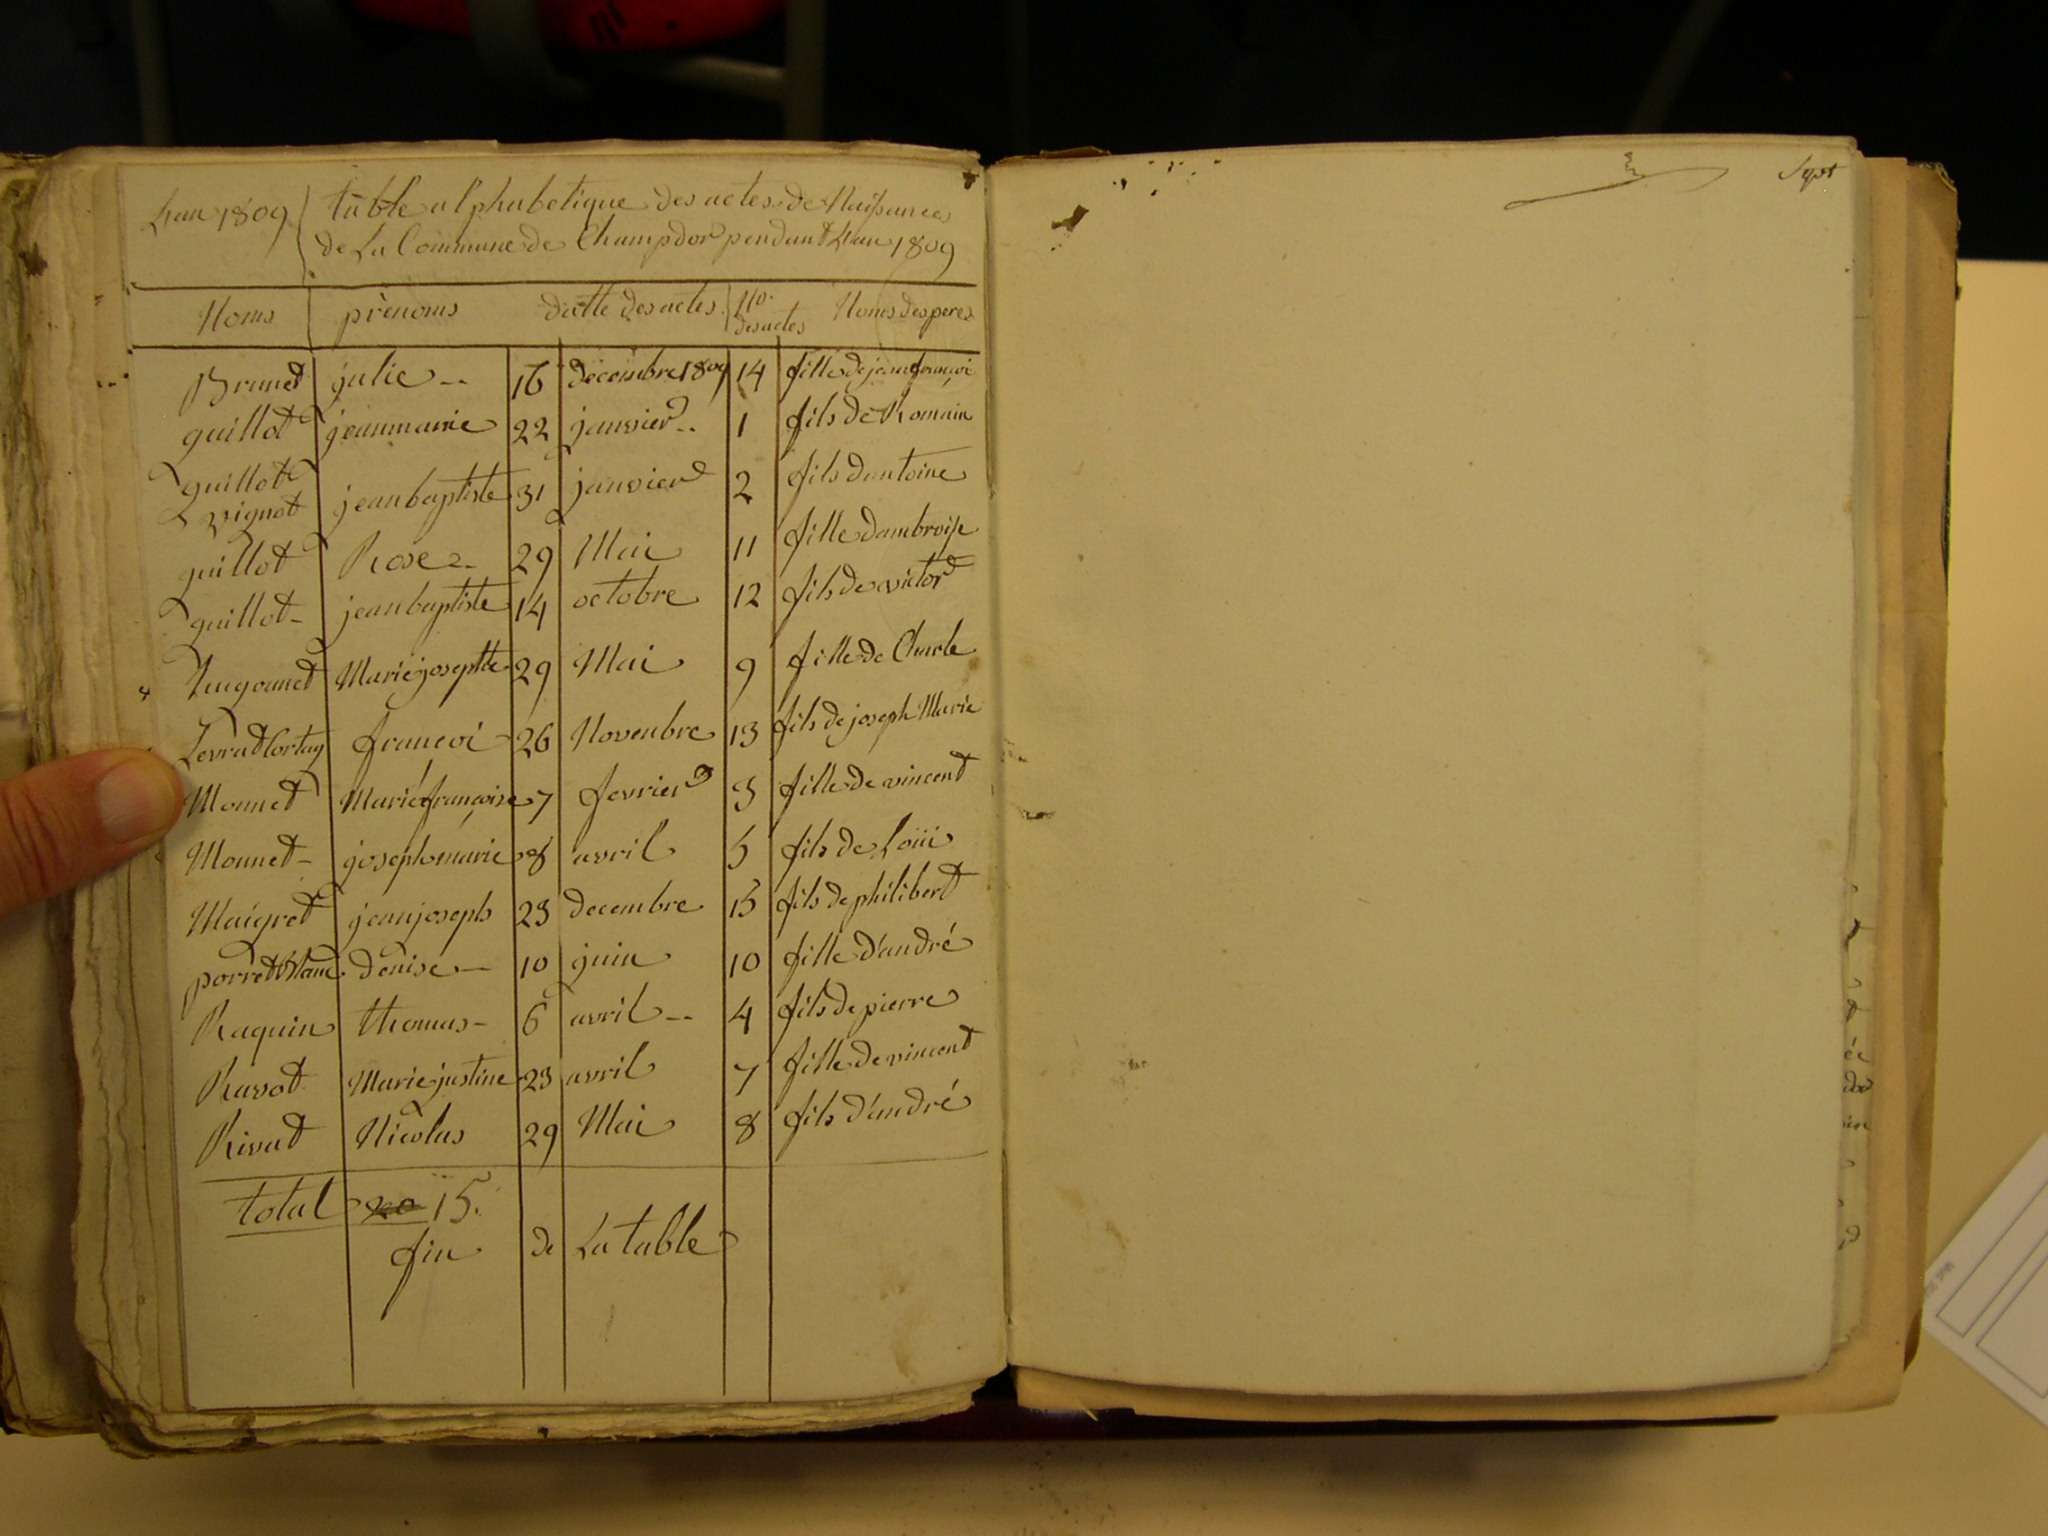 Lan 1809 table alphabetique des actes de Naissances
de La Commune de Champdor pendant Lan 1809
Noms prènoms datte des actes No. des actes Noms des peres
Brunet julie -- 16 decembre 1809 14 fille de jean françoi
guillot jean marie 22 janvier -- 1 fils de Romain
guillot vignot jean baptiste 31 janvier 2 fils dantoine
guillot Rose -- 29 Mai 11 fille dambroise
guillot - jean baptiste 14 octobre 12 fils de victor
Marie josephte 29 Mai 9 fille de Charle
Levrat Cortay françoi 26 Novenbre 13 fils de joseph Marie
Monnet Marie françoise 7 fevrier 3 fille de vincent
Monnet - joseph marie 8 avril 5 fils de Loüi
Maigret jean joseph 23 decembre 15 fils de philibert
porret blanc denise -- 10 juin 10 fille d'andré
Raquin thomas - 6 avril -- 4 fils de pierre
Ravot Marie justine 23 avril 7 fille de vincent
Rivat Nicolas 29 Mai 8 fils d'andré
total 15.
fin de La table